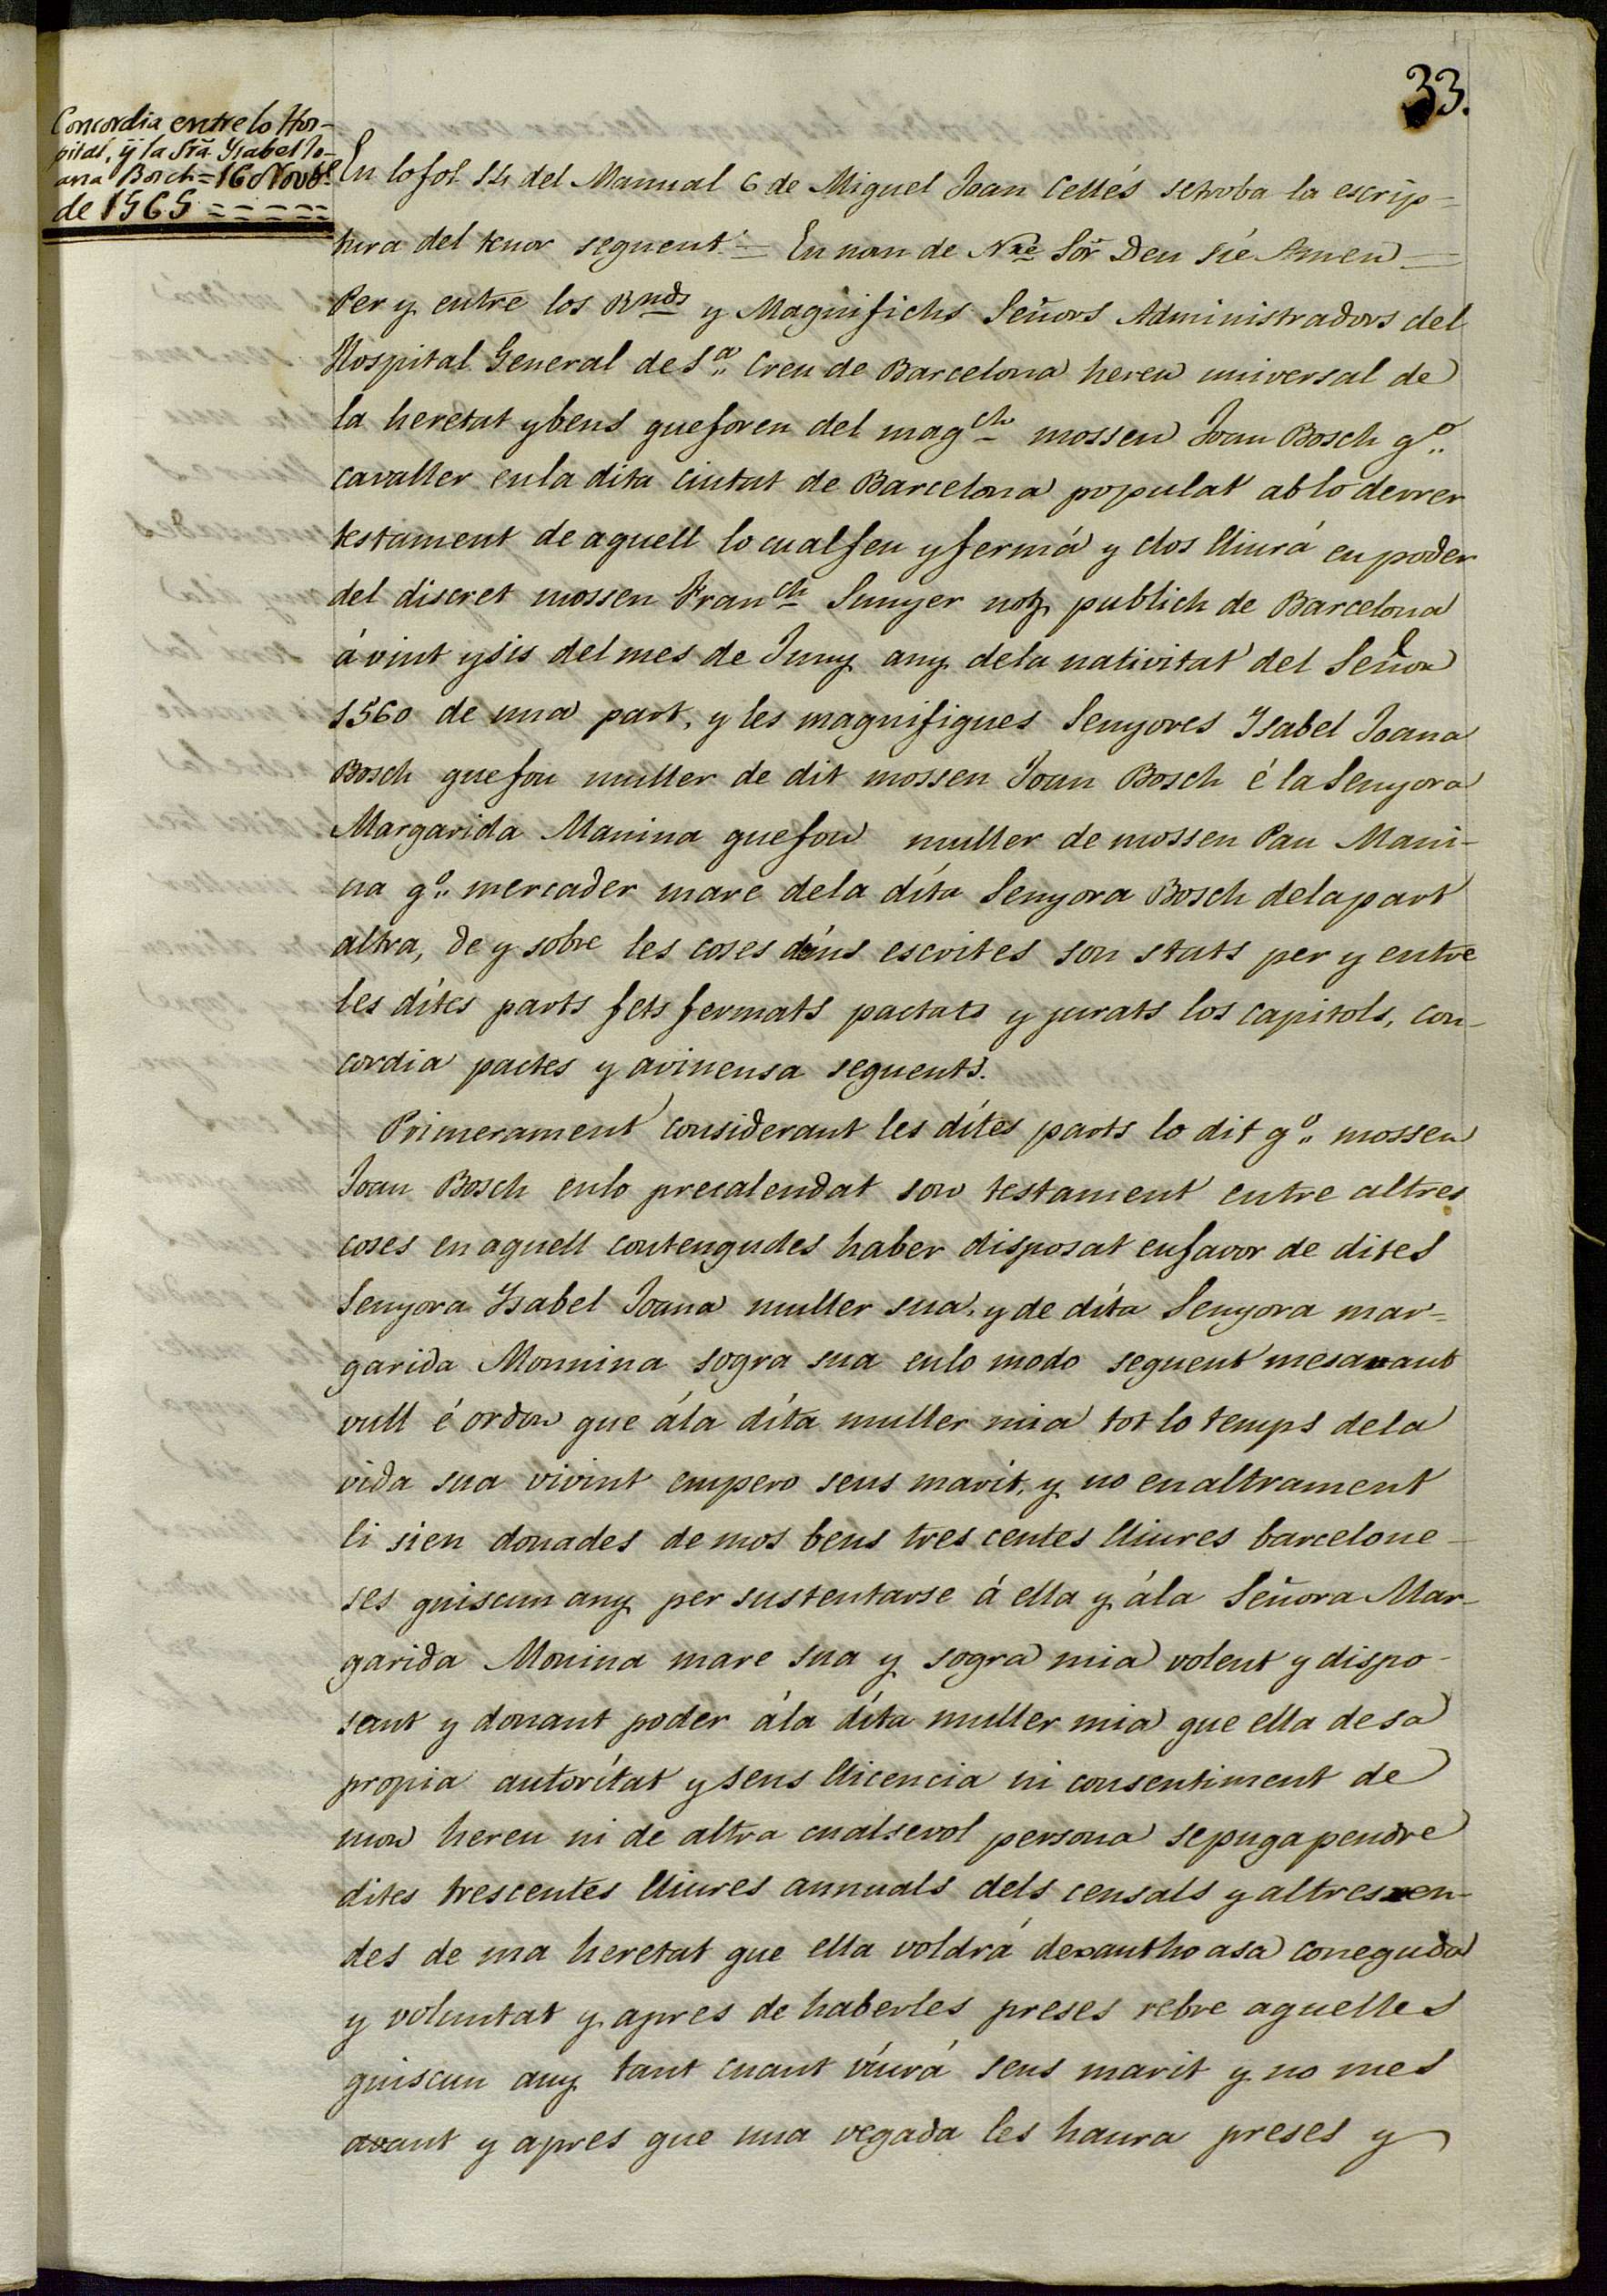 33.
Concordia entre lo Hos-
pital, ÿ la Srã. Ysabel Jo-
ana Bosch = 16 Novbe.
de 1565 = = = = =
En lo fol. 14 del Manual 6 de Miguel Joan Cellés setroba la escrip-
tura del tenor seguent. = En nom de Nre Sor̃ Deu sie Amen =
Per y entre los Rnds y Magnifichs Señors Administradors del
Hospital General de Sa.. Creu de Barcelona hereu universal de
la heretat y bens que foren del magch mossen Joan Bosch qo..
cavaller en la dita Ciutat de Barcelona populat ab lo derrer
testament de aquell lo cual feu y fermá y clos lliurá en poder
del discret mossen Franch Sunyer notz publich de Barcelona
á vint y sis del mes de Juny any de la nativitat del Señor
1560 de una part, y les magnifiques Senyores Ysabel Joana
Bosch que fou muller de dit mossen Joan Bosch é la Senyora
Margarida Manina que fou muller de mossen Pau Mani-
na qo.. mercader mare de la dita Senyora Bosch de la part
altra, de y sobre les coses dins escrites son stats per y entre
les dites parts fets fermats pactats y jurats los capitols, con-
cordia pactes y avinensa seguents.
Primerament considerant les dites parts lo dit qo.. mossen
Joan Bosch en lo precalendat son testament entre altres
coses en aquell contengudes haber disposat en favor de dites
Senyora Ysabel Joana muller sua, y de dita Senyora mar-
garida Monnina sogra sua en lo modo seguent mesavant
vull é orden que á la dita muller mia tot lo temps de la
vida sua vivint empero sens marit, y no en altrament
li sien donades de mos bens tres centes lliures barcelone-
ses quiscun any per sustentarse á ella y á la Señora Mar-
garida Monina mare sua y sogra mia volent y dispo-
sant y donant poder á la dita muller mia que ella de sa
propia autoritat y sens llicencia ni consentiment de
mon hereu ni de altra cualsevol persona se puga pendre
dites trescentes lliures annuals dels censals y altres ren-
des de ma heretat que ella voldrá dexantho a sa coneguda
y voluntat y apres de haberles preses rebre aquelles
quiscun any tant cuant viurá sens marit y no mes
avant y apres que una vegada les haura preses y